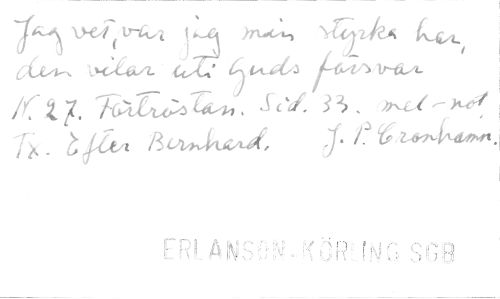 Jag vet, var jag min styrka har,
den vilar uti Guds försvar
N. 27. Förtröstan. Sid. 33. mel-not.
Tx. Efter Bernhard. J. P. Cronhamn.
ERLANSON-KÖRLING SGB